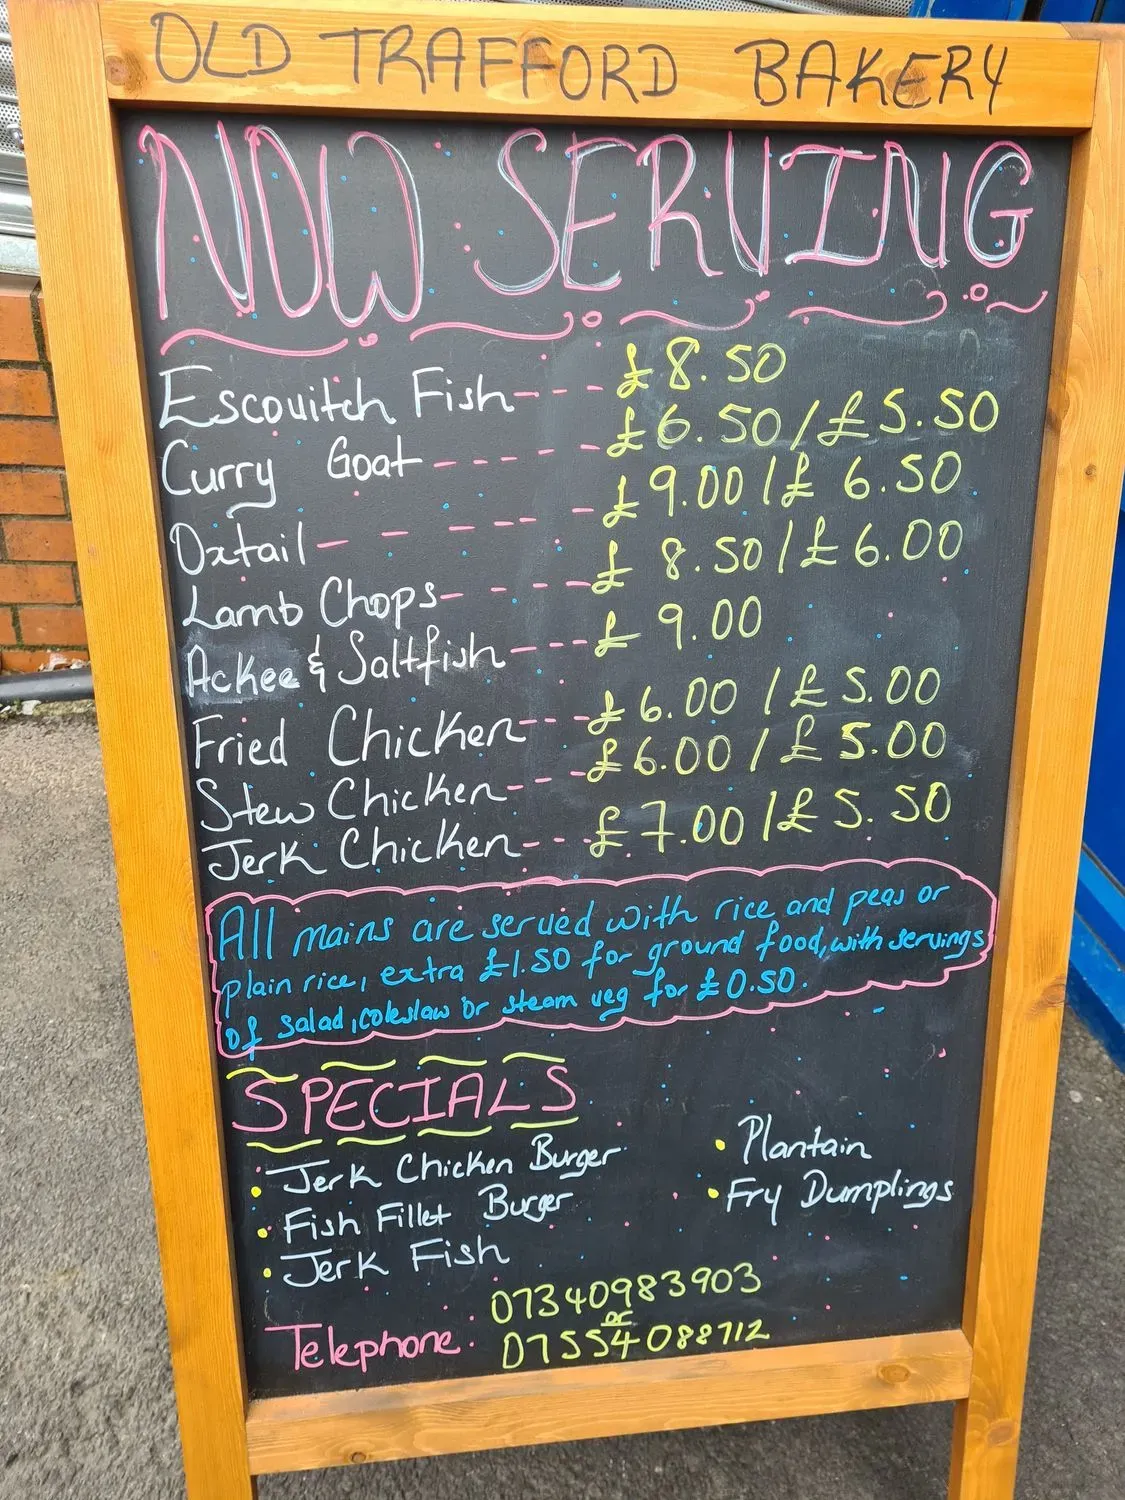 OLD TRAFFORD BAKERY
NOW SERVING
Escovitch Fish --- £8.50
Curry Goat ----- £6.50/£5.50
Oxtail - - - - - - £9.00/£6.50
Lamb Chops ----- £8.50/£6.00
Ackee & Saltfish --- £9.00
Fried Chicken --- £6.00/£5.00
Stew Chicken --- £6.00/£5.00
Jerk Chicken --- £7.00/£5.50
All mains are served with rice and peas or
plain rice, extra £1.50 for ground food, with servings
of salad, coleslaw or steam veg for £0.50.
SPECIALS
• Jerk Chicken Burger
• Fish Fillet Burger
• Jerk Fish
• Plantain
• Fry Dumplings
Telephone: 07340983903
or
07554088712